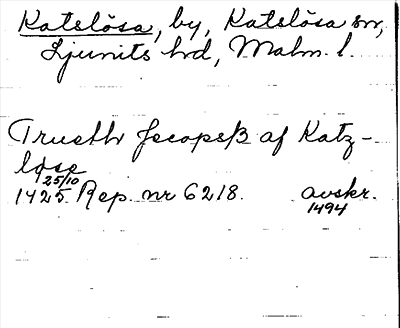 Katslösa, by, Katslösa sn,
Ljunits hd, Malm. l.
Trueth Jscopsß af Katz-
løse
25/10
1425. Rep. nr 6218. avskr.
1494